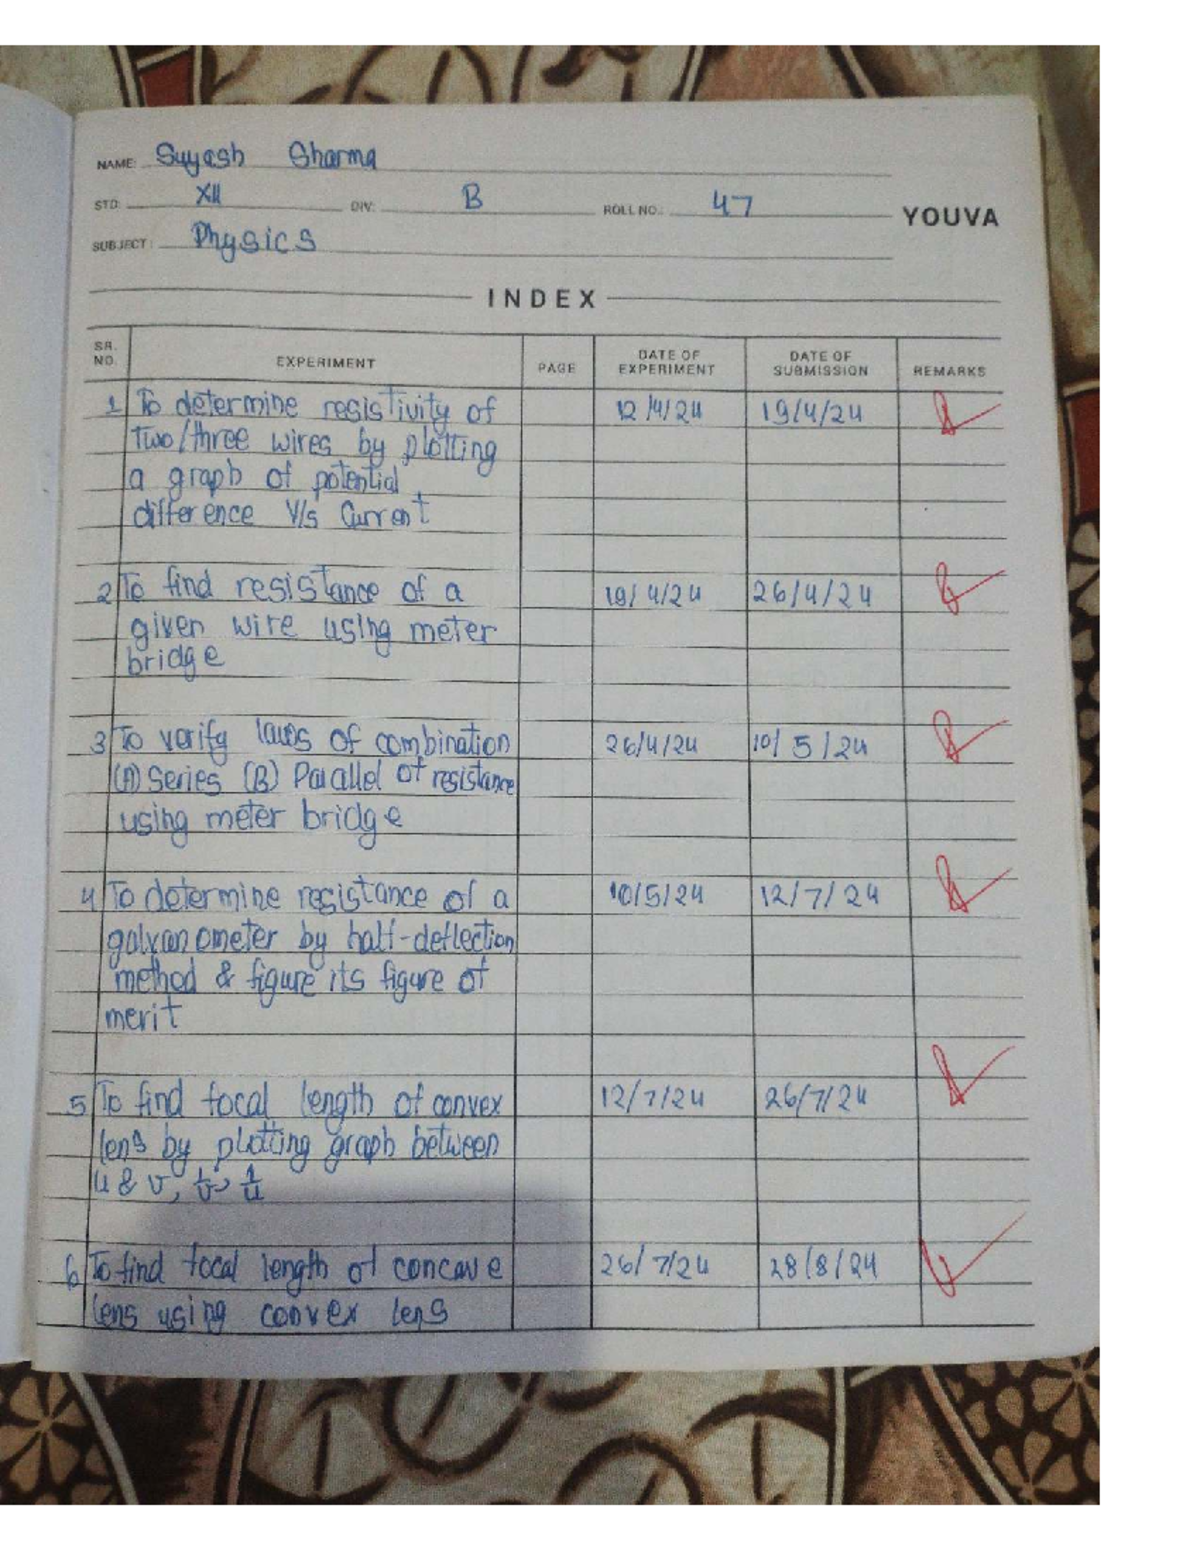 NAME: Suyash Sharma
STD: XII DIV: B ROLL NO.: 47 YOUVA
SUBJECT: Physics
INDEX
SR. NO. EXPERIMENT PAGE DATE OF EXPERIMENT DATE OF SUBMISSION REMARKS
1 To determine resistivity of 12/4/24 19/4/24
Two/three wires by plotting
a graph of potential
difference V/s Current
2 To find resistance of a 19/4/24 26/4/24
given wire using meter
bridge
3 To verify laws of combination 26/4/24 10/5/24
(A) Series (B) Parallel of resistance
using meter bridge
4 To determine resistance of a 10/5/24 12/7/24
galvanometer by half-deflection
method & figure its figure of
merit
5 To find focal length of convex 12/7/24 26/7/24
lens by plotting graph between
u & v, 1/v, 1/u
6 To find focal length of concave 26/7/24 28/8/24
lens using convex lens